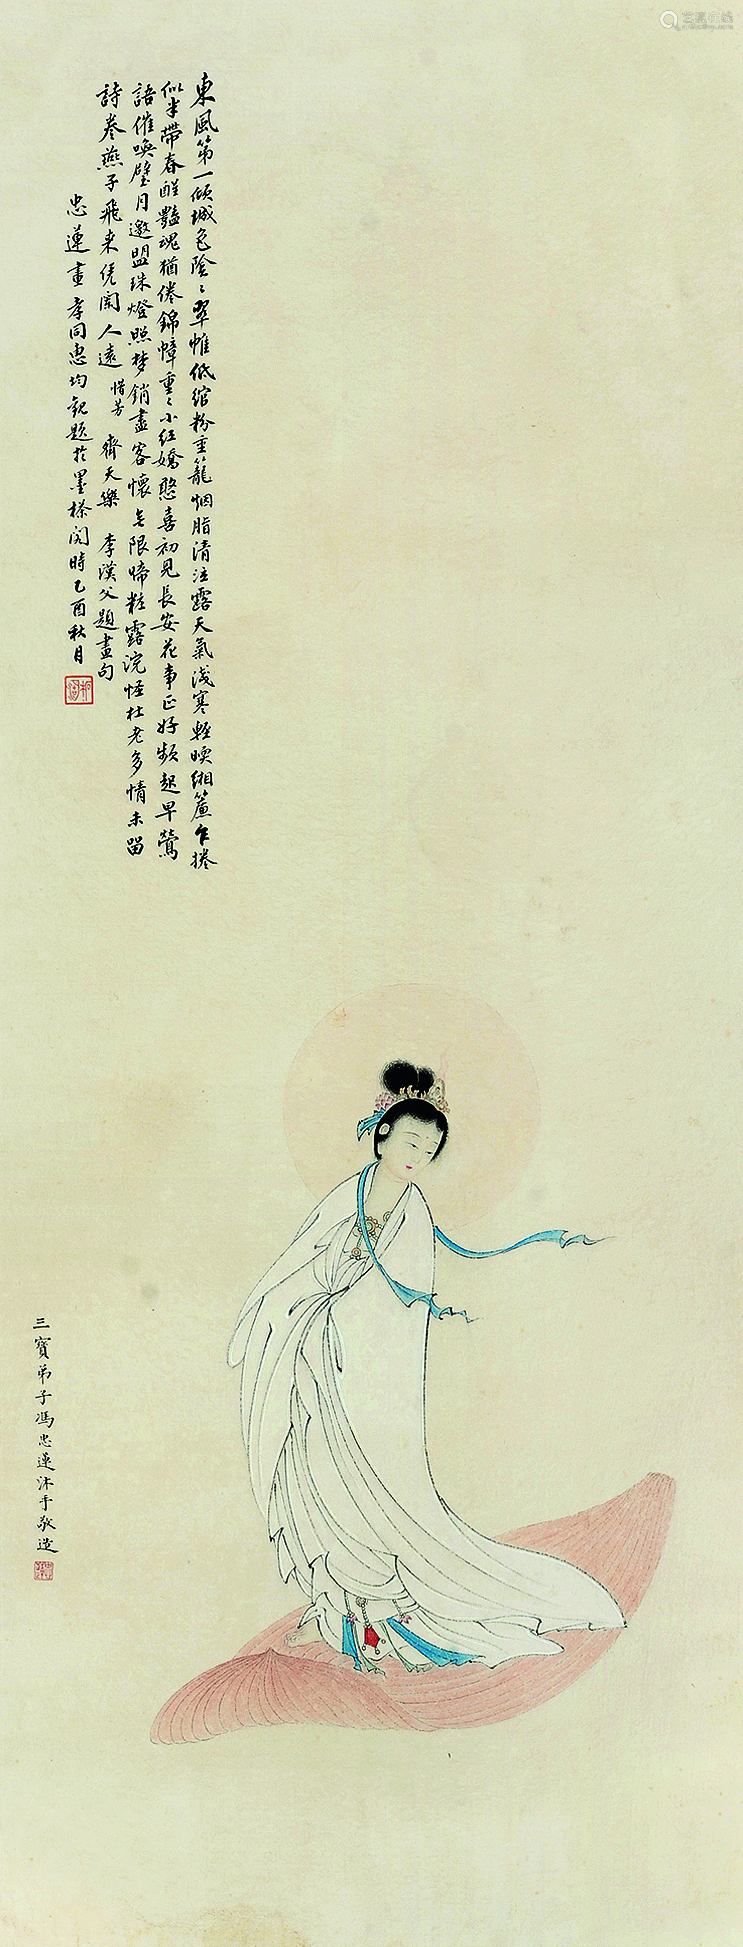 東風第一傾城色陰〻翠帷低綰粉重籠烟脂清注露天氣淺寒輕暖緗簾乍捲
似半帶春酲豔魂猶倦錦幛重〻小紅嬌憨喜初見長安花事正好頻起早鶯
語催喚璧月邀盟珠燈照梦銷盡客懷无限啼粧露浣怪杜老多情未留
詩卷燕子飛来凭闌人遠 惜芳 齊天樂 李漢父題畫句
忠蓮畫孝同惠均観題於墨閣時乙酉秋月
三寶弟子馮忠蓮沐手敬造